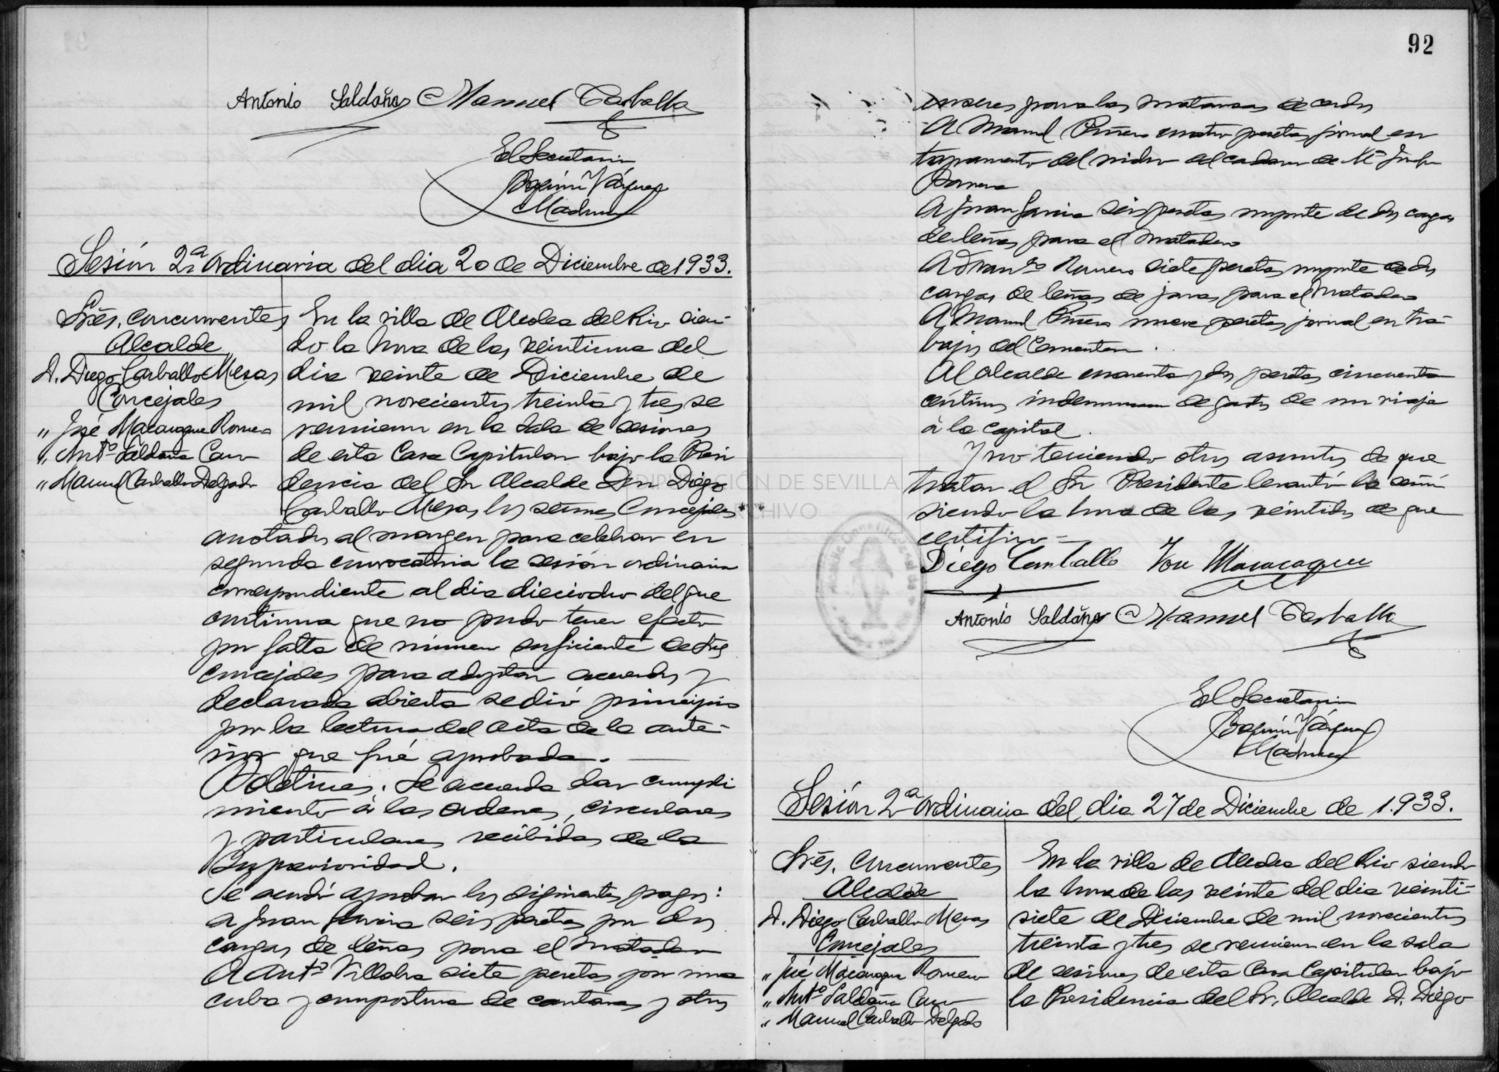 Antonio Saldaña Manuel Carballo
El Secretario
Joaquín Vázquez
Sesión 2ª ordinaria del dia 20 de Diciembre de 1933.
Srēs. concurrentes
Alcalde
D. Diego Carballo Mesas
Concejales
" José Macarque Romero
" Antº Saldaña Caro
" Manuel Carballo Delgado
En la villa de Alcolea del Rio sien-
do la hora de las veintiuna del
dia veinte de Diciembre de
mil novecientos treinta y tres se
reunieron en la sala de sesiones
de esta Casa Capitular bajo la Presi
dencia del Sr Alcalde Don Diego
Carballo Mesas los señores Concejales
anotados al margen para celebrar en
segunda convocatoria la sesión ordinaria
correspondiente al dia dieciocho del que
continua que no pudo tener efecto
por falta de número suficiente de Srēs
concejales para adoptar acuerdos y
declarada abierta se dió principio
por la lectura del acta de la ante-
rior que fué aprobada.
Boletines. Se acuerda dar cumpli
miento á las ordenes, circulares
y particulares recibidas de la
Superioridad.
Se acordó aprobar los siguientes pagos:
a Juan Garcia seis pesetas por dos
cargas de leñas para el matadero
A Antº Villalba siete pesetas por una
cuba y compostura de cantaras y otros
92
enseres para las matanzas de cerdos
A Manuel Piñero cuatro pesetas jornal en
tapamento del nicho del cadaver de
Romero
A Juan Garcia seis pesetas importe de dos cargas
de leñas para el matadero
A Romero siete pesetas importe de dos
cargas de leñas de jaras para el Matadero
A Manuel Piñero nueve pesetas jornal en tra-
bajos del Cementerio.
Al alcalde cuarenta y dos pesetas cincuenta
céntimos de gastos de un viaje
á la capital.
Y no teniendo otros asuntos de que
tratar el Sr Presidente levantó la sesión
siendo la hora de las veintidos de que
certifico=
Diego Carballo José Macarque
Antonio Saldaña Manuel Carballo
El Secretario
Joaquín Vázquez
Sesión 2ª ordinaria del dia 27 de Diciembre de 1.933.
Srēs. concurrentes
Alcalde
D. Diego Carballo Mesas
Concejales
" José Macarque Romero
" Antº Saldaña Caro
" Manuel Carballo Delgado
En la villa de Alcolea del Rio siendo
la hora de las veinte del dia veinti-
siete de Diciembre de mil novecientos
treinta y tres se reunieron en la sala
de sesiones de esta Casa Capitular bajo
la Presidencia del Sr. Alcalde D. Diego
DIPUTACIÓN DE SEVILLA
ARCHIVO